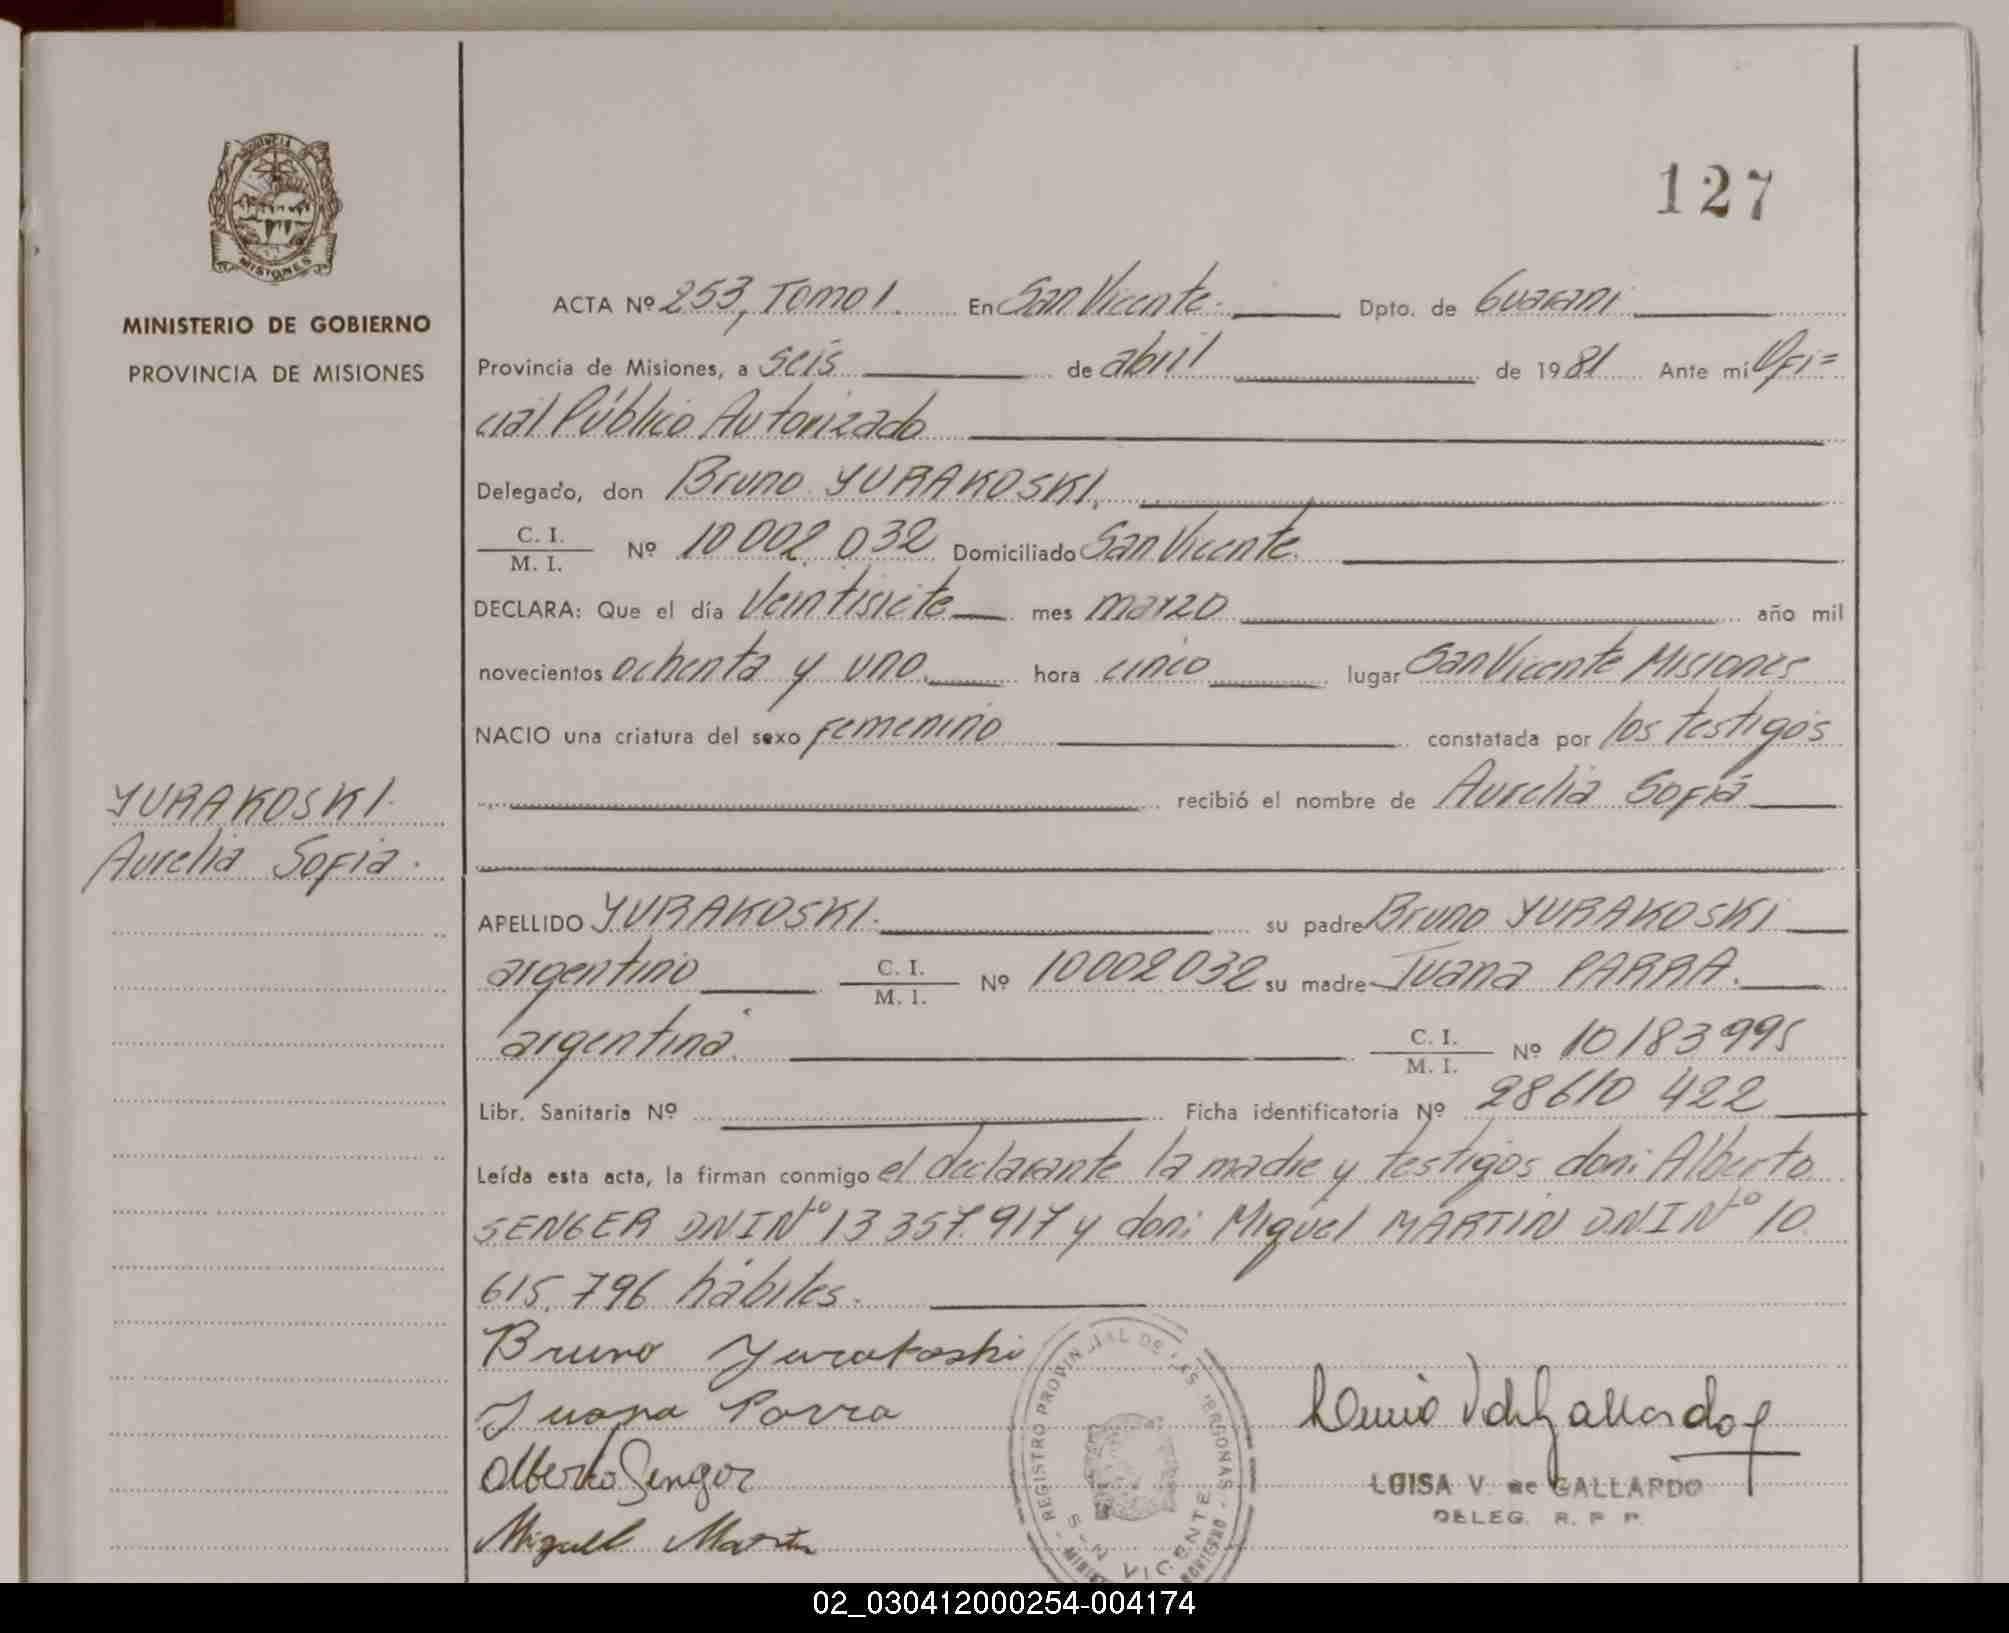 PROVINCIA
MISIONES
MINISTERIO DE GOBIERNO
PROVINCIA DE MISIONES
YURAKOSKI.
Aurelia Sofia.
127
ACTA Nº 253, Tomo I. En San Vicente. Dpto. de Guarani
Provincia de Misiones, a seis de abril de 1981 Ante mi Ofi=
cial Público Autorizado
Delegado, don Bruno YURAKOSKI.
C. I.
M. I. Nº 10002.032 Domiciliado San Vicente.
DECLARA: Que el día veintisiete mes marzo año mil
novecientos ochenta y uno. hora cinco lugar San Vicente Misiones
NACIO una criatura del sexo femenino constatada por los testigos
recibió el nombre de Aurelia Sofia
APELLIDO YURAKOSKI. su padre Bruno YURAKOSKI
argentino C. I.
M. I. Nº 10002032 su madre Juana PARRA.
argentina. C. I.
M. I. Nº 10183995
Libr. Sanitaria Nº Ficha identificatoria Nº 28610 422
Leída esta acta, la firman conmigo el declarante la madre y testigos don: Alberto
SENGER DNI Nº 13357.917 y don: Miguel MARTIN D.N.I Nº 10.
615.796 hábiles.
Bruno Yurakoski
Juana Parra
Alberto Senger
Miguel Martin
REGISTRO PROVINCIAL DE LAS PERSONAS
SAN VICENTE
LUISA V. de GALLARDO
DELEG. R. P. P.
02_030412000254-004174